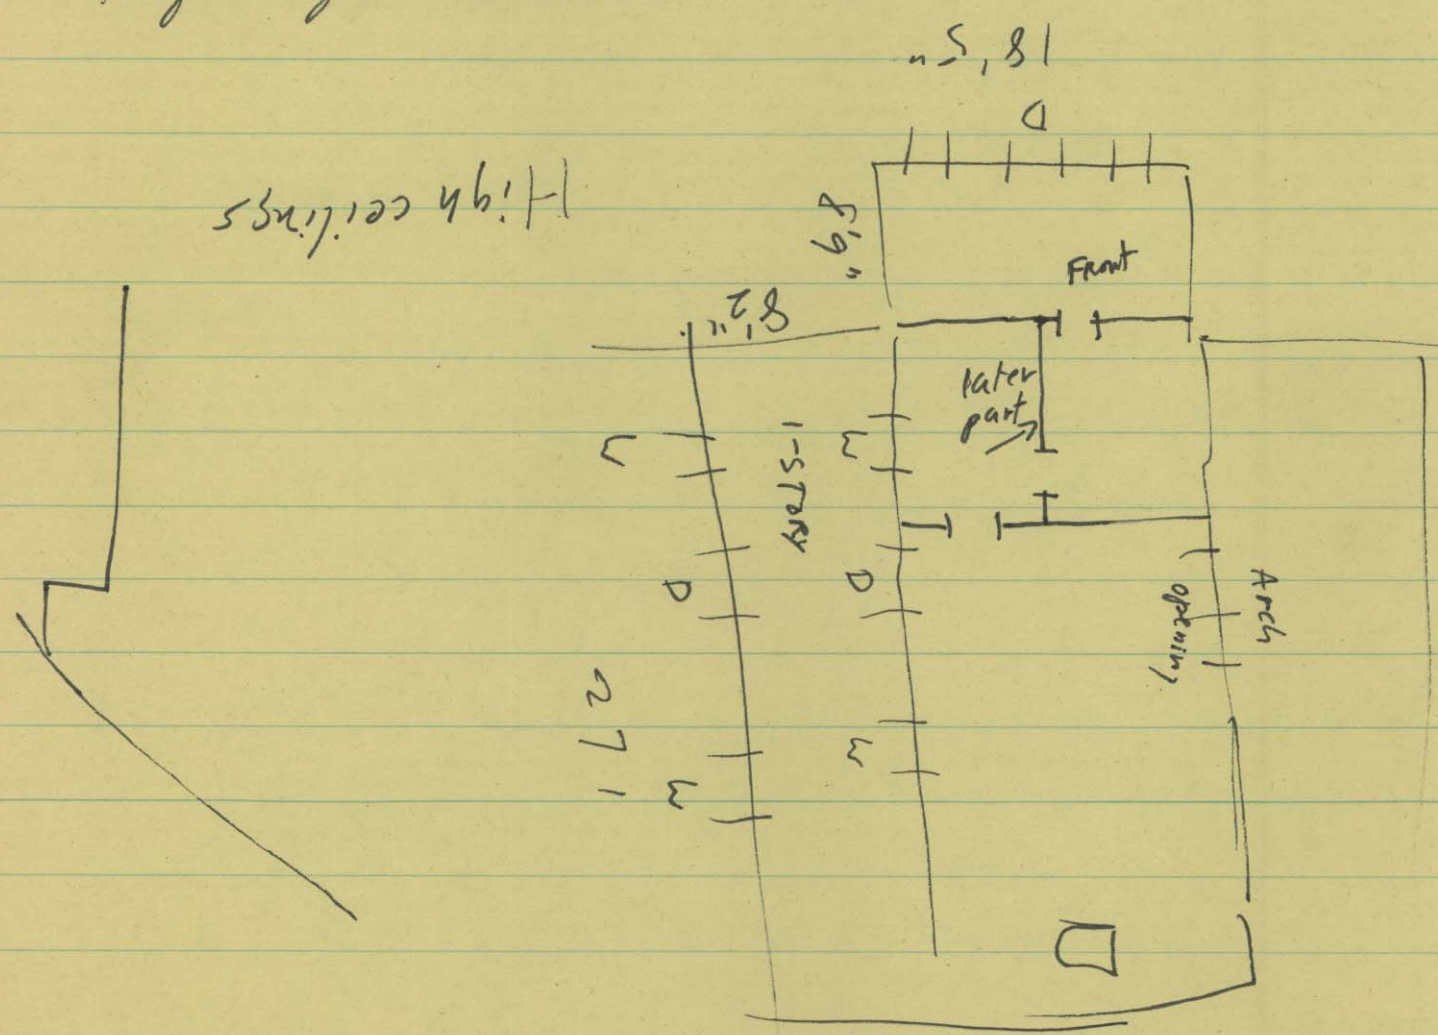 18'5"
D
High ceilings
8'9"
Front
8'2"
later
part
1-STORY
W
W
D
D
Arch
opening
271
W
W